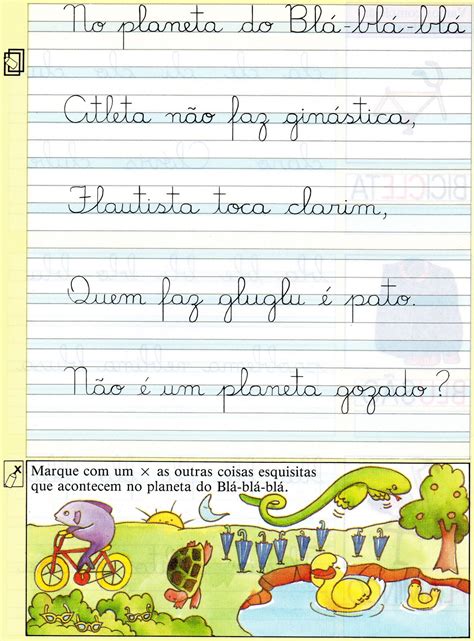 No planeta do Blá-blá-blá
Atleta não faz ginástica,
Flautista toca clarim,
Quem faz gluglu é pato.
Não é um planeta gozado?
Marque com um × as outras coisas esquisitas
que acontecem no planeta do Blá-blá-blá.